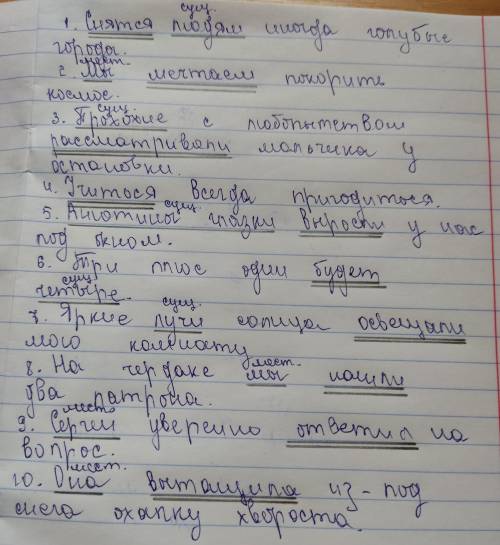 сущ.
1. Снятся людям иногда голубые
города.
мест.
2. Мы мечтаем покорить
космос.
сущ.
3. Прохожие с любопытством
рассматривали мальчика у
остановки.
4. Учиться всегда пригодиться.
сущ.
5. Анютины глазки выросли у нас
под окном.
6. Три плюс один будет
четыре.
сущ. сущ.
7. Яркие лучи солнца освещали
мою комнату
мест.
8. На чердаке мы нашли
два патрона.
мест.
9. Сергей уверенно ответил на
вопрос.
мест.
10. Она вытащила из-под
снега охапку хвороста.